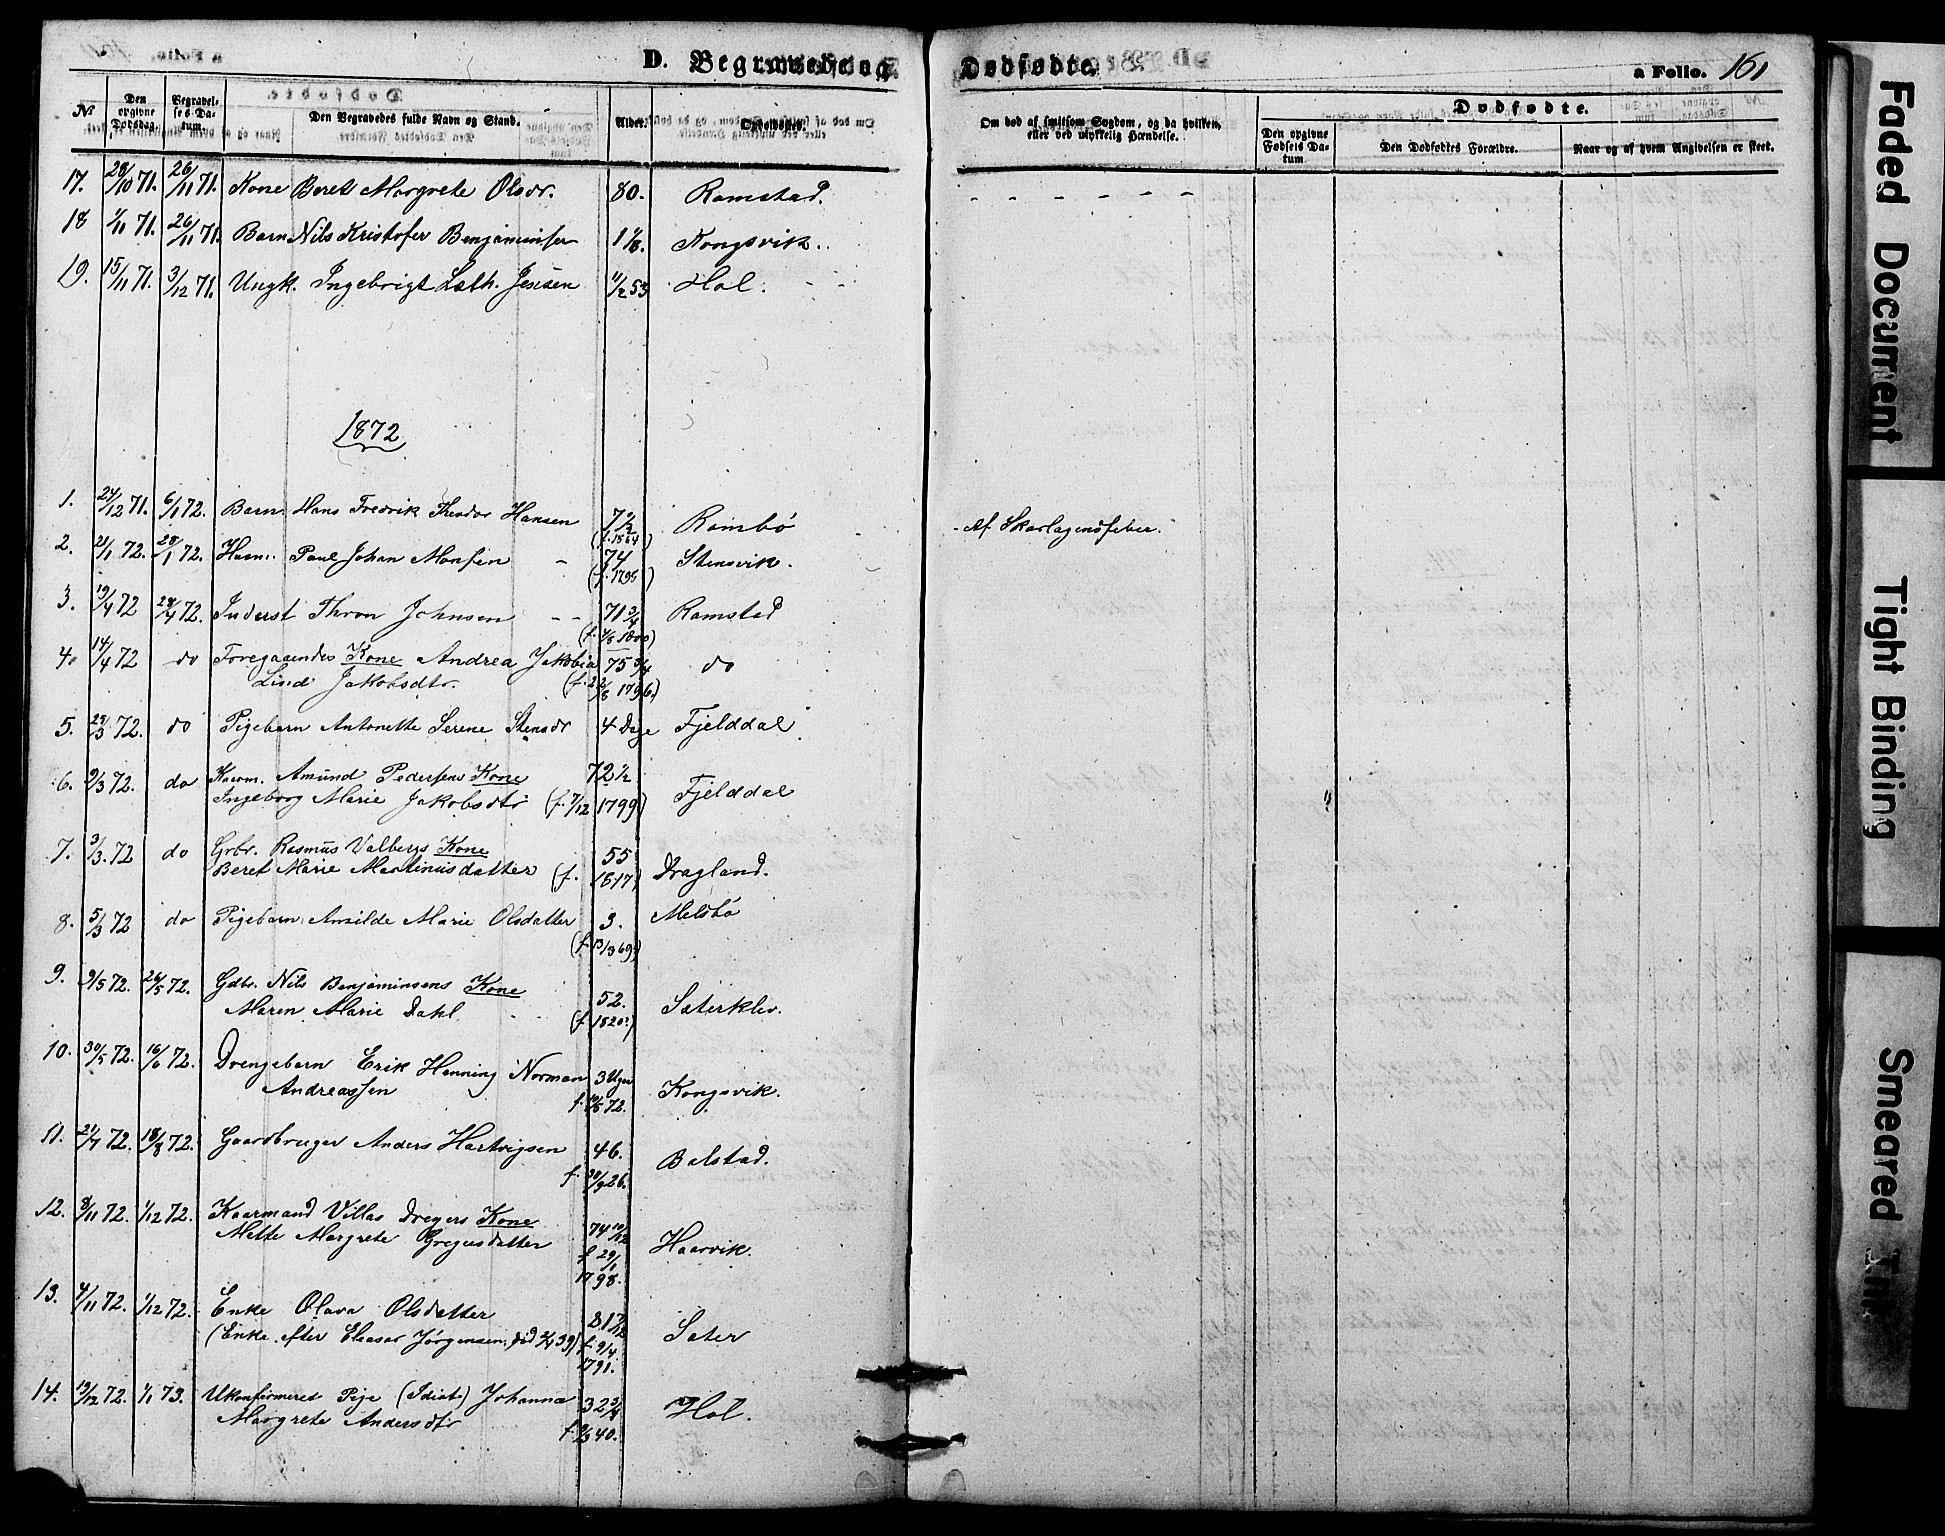 D. Begravede og Dødfødte. a Folio. 161
No
Den opgivne Dødsdag.
Begravelses Datum.
Den Begravedes fulde Navn og Stand.
Alder.
Opholdssted.
Om død af smitsom Sygdom, og da hvilken, eller ved ulykkelig Hændelse.
Dødfødte.
Den opgivne Fødsels Datum
Den Dødfødtes Forældre.
Naar og af hvem Angivelsen er skeet.
17. 28/10 71. 26/11 71. Kone Beret Margrete Olsdr. 80. Ramstad. - - - - - -
18 1/11 71. 26/11 71. Barn Nils Kristofer Benjaminsen 1 1/8. Kongsvik.
19. 15/11 71. 3/12 71. Ungk. Ingebrigt Læth. Jensen 11/2 53 Hol.
1872
1. 24/12 71. 6/1 72. Barn Hans Fredrik Theodor Hansen 7 1/2 (f. 1864) Rambø - Af Skarlagensfeber.
2. 21/1 72. 28/1 72. Huusm. Paul Johan Monsen - 74 (f. 1798) Stensvik.
3. 19/4 72 28/4 72. Inderst Thron Johnsen - - 71 3/4 (f. 4/8 1800) Ramstad
4. 14/4 72 do Foregaaendes Kone Andrea Jakobia 75 3/4 do
Lind Jakobsdtr. (f. 22/8 1796.)
5. 29/3 72. do Pigebarn Antonette Serene Stensdr 4 Dage Fjelddal
6. 9/3 72. do Kaarm. Amund Pedersens Kone 72 1/2
Ingeborg Marie Jakobsdtr (f. 7/12 1799) Fjelddal
7. 3/3. 72 do Grbr. Rasmus Valbergs Kone 55
Beret Marie Martinusdatter (f. 1817) Dragland.
8. 5/3 72 do Pigebarn Amilde Marie Olsdatter 3. Melsbø
(f. 13/3 69.)
9. 9/5 72. 26/5 72. Gdbr. Nils Benjaminsens Kone 52.
Maren Marie Dahl (f. 1820.) Sæterklev.
10. 30/5 72. 16/6 72. Drengebarn Erik Henning Norman 3 Uger
Andreassen f. 10/5 72. Kongsvik.
11. 21/7 72. 18/8 72. Gaardbruger Anders Hartvigsen 46. Balstad.
f. 30/9 26.
12. 8/11 72. 1/12 72. Kaarmand Villas Dreyers Kone 74 10/12
Mette Margrete Gregusdatter f 29/1 1798. Haarvik.
13. 4/11 72. 1/12 72. Enke Olava Olsdatter 81 7/12
(Enke efter Eleasar Jørgensen, død 2/4 39) f. 9/4 1791. Sæter
14. 19/12 72. 1/1 73. Ukonfirmeret Pige (Idiot) Johanna 32 3/4
Margrete Andersdtr f. 9/3 40. Hol.
Faded Document
Tight Binding
Smeared Ink